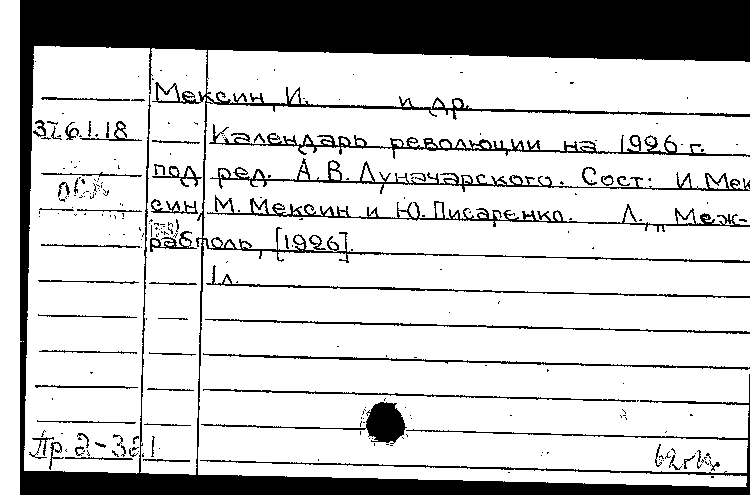 Мексин, И. и др.
37.61.18 Календарь революции на 1926 г.
под ред. А.В. Луначарского. Сост: И. Мек
син, М. Мексин и Ю. Писаренко. Л., "Меж-
рабполь, [1926].
1 л.
Пр. 2-321